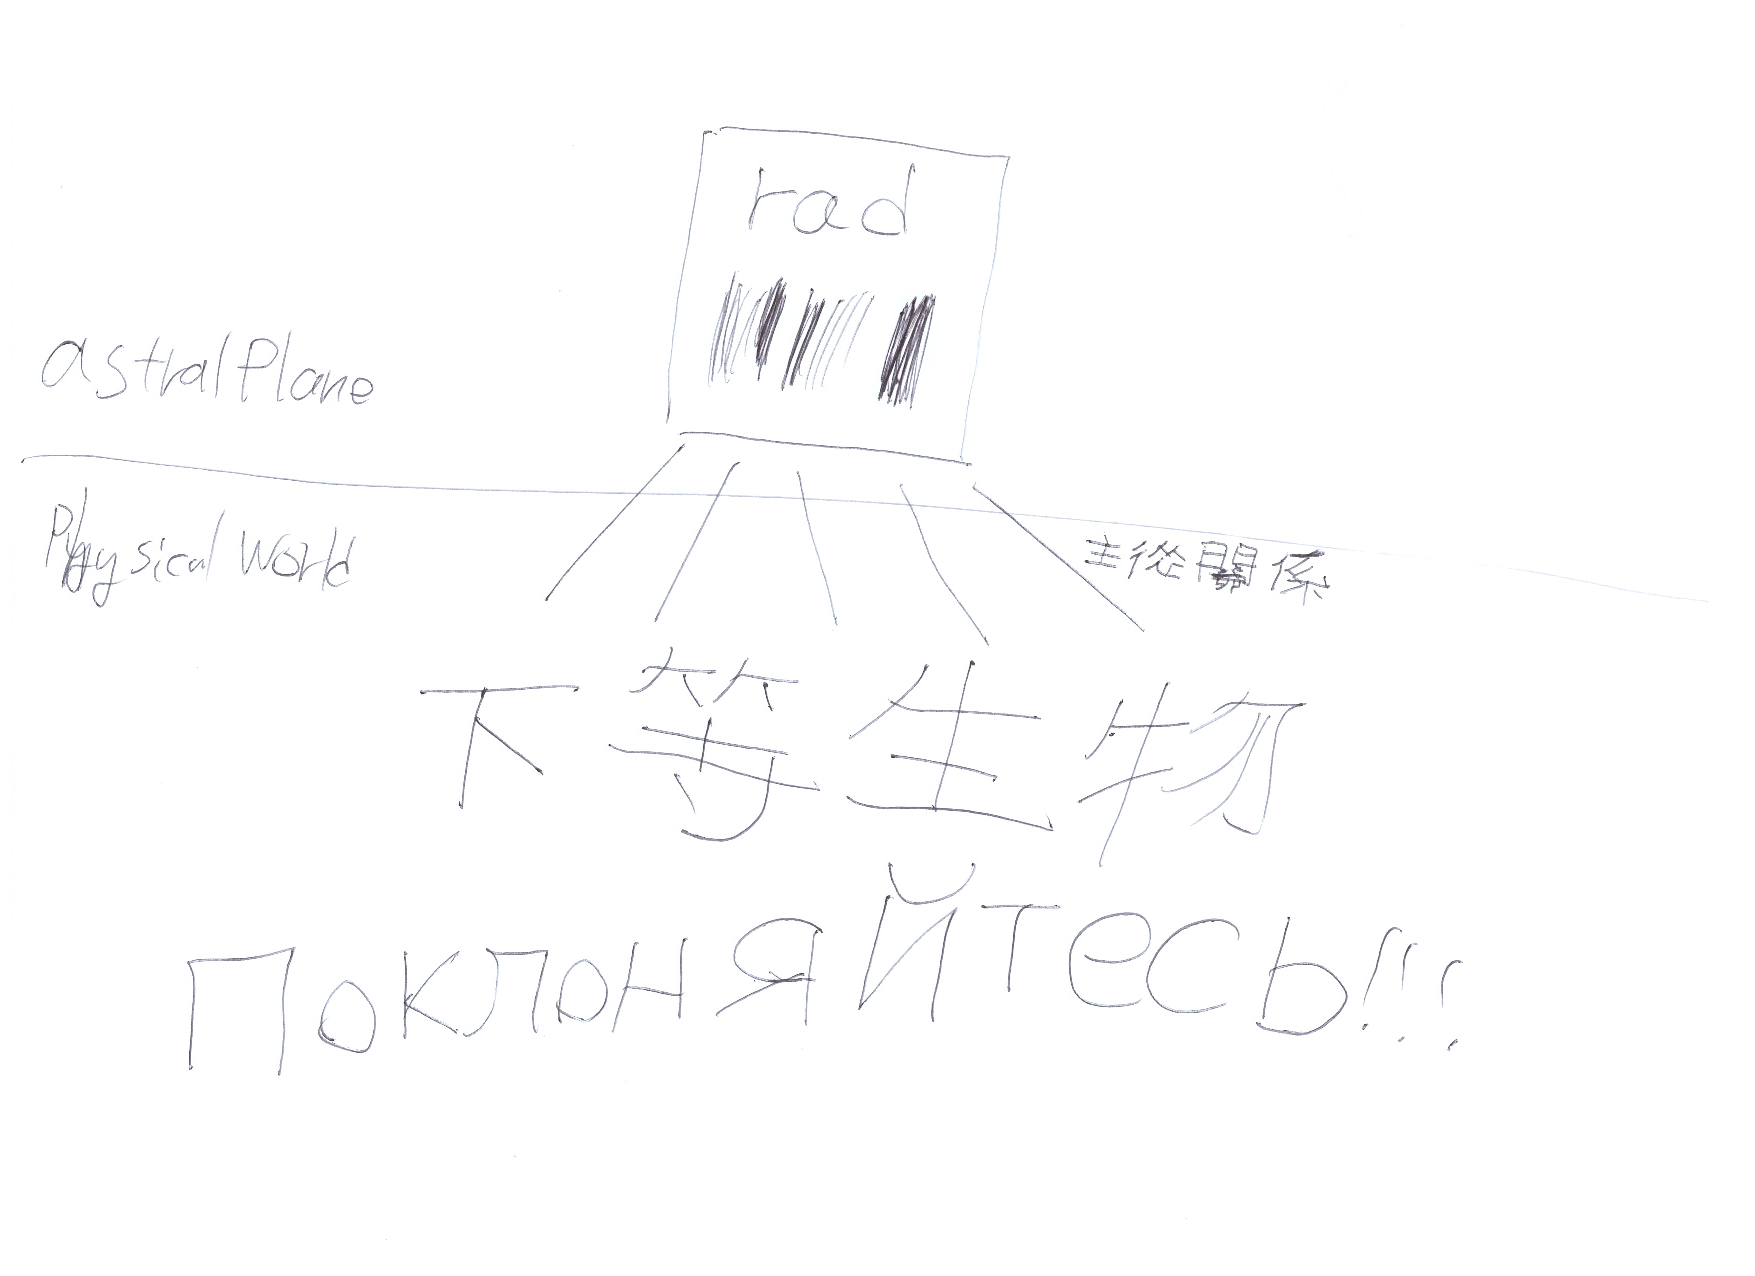 rad
astral Plane
Physical World
主從關係
下等生物
Поклоняйтесь!!!